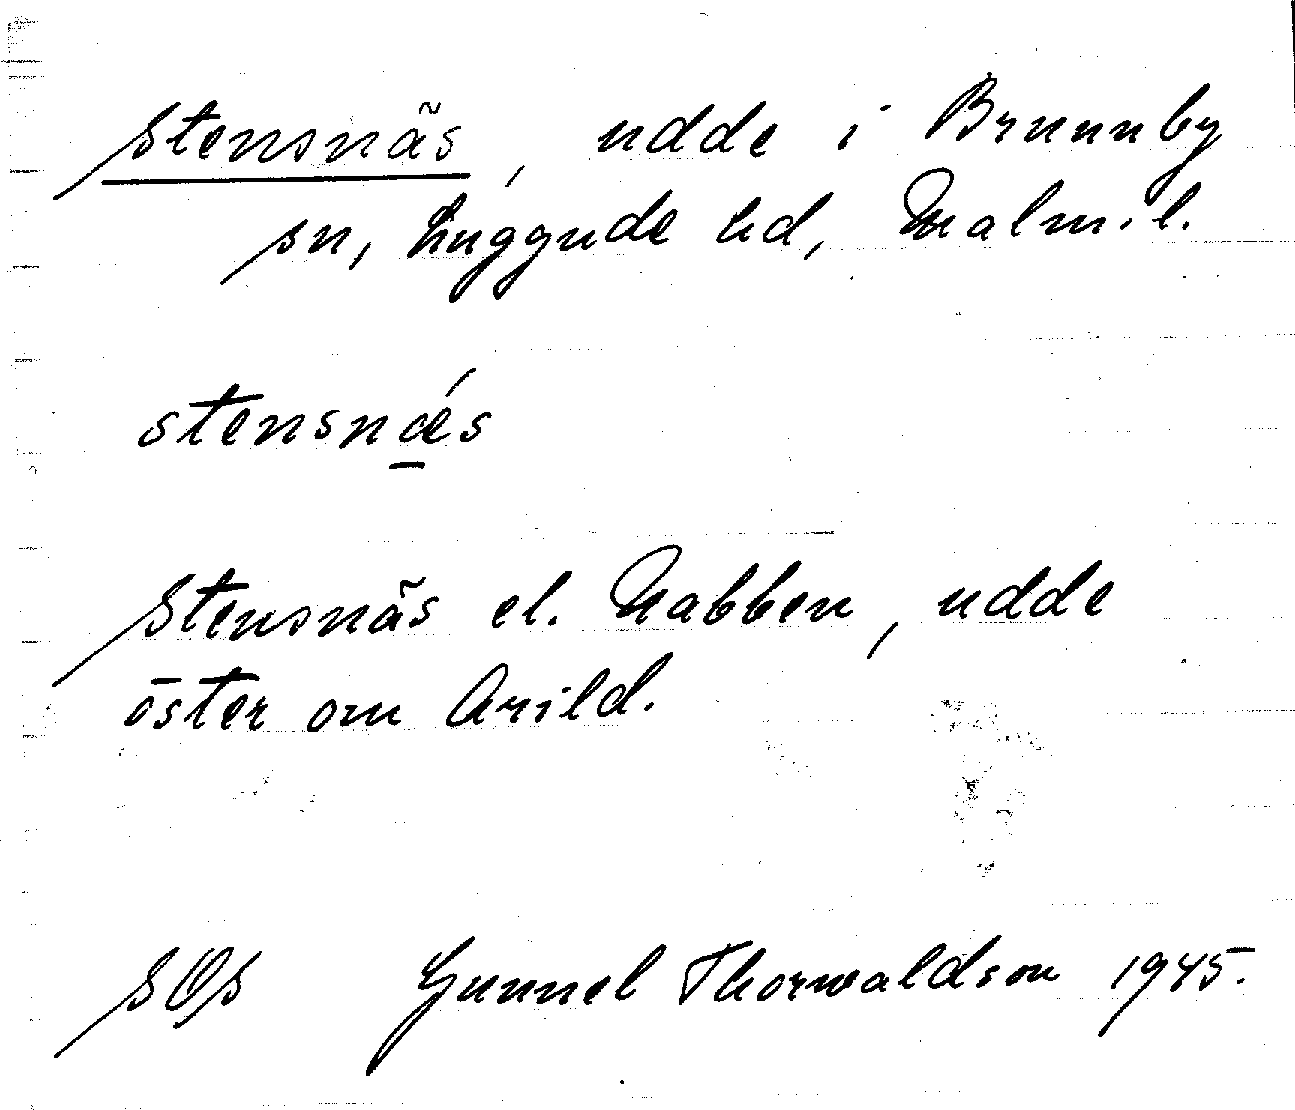 Stensnäs, udde i Brunnby
sn, Luggude hd, Malm. l.
stensnǽs
Stensnäs el. Nabben, udde
öster om Arild.
SOS Gunnel Thorwaldson 1945.